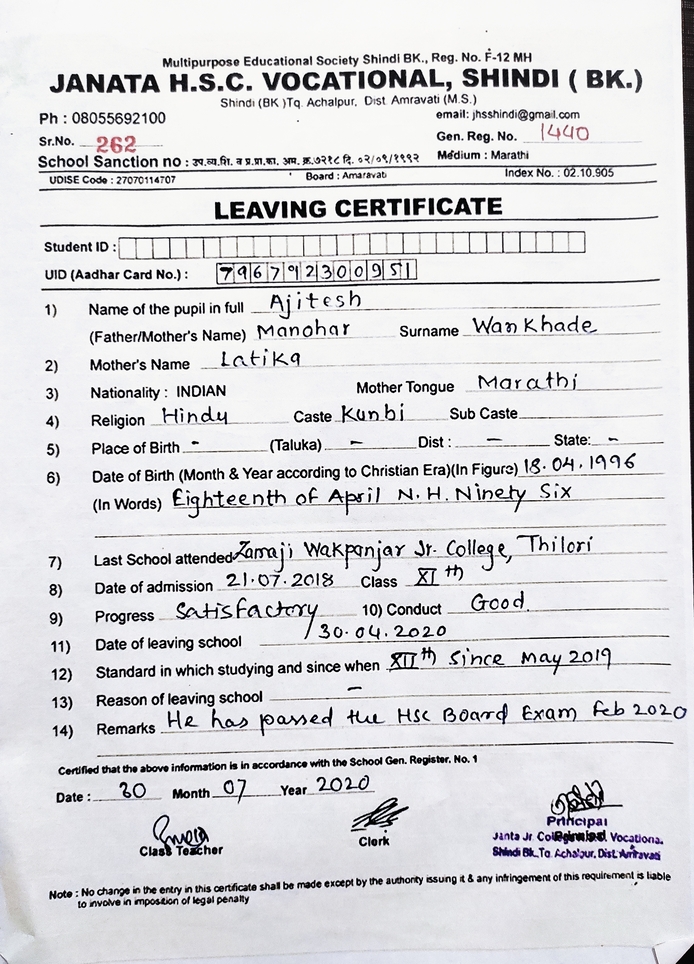 Multipurpose Educational Society Shindi BK., Reg. No. F-12 MH
JANATA H.S.C. VOCATIONAL, SHINDI ( BK.)
Shindi (BK )Tq. Achalpur, Dist. Amravati (M.S.)
Ph : 08055692100 email: jhsshindi@gmail.com
Sr.No. 262 Gen. Reg. No. 1440
School Sanction no : उप.व्य.शि. व प्र.प्रा.का. अम. क्र.७२१८ दि. ०२/०९/१९९२ Medium : Marathi
UDISE Code : 27070114707 Board : Amaravati Index No. : 02.10.905
LEAVING CERTIFICATE
Student ID :
UID (Aadhar Card No.) : 796792300951
1) Name of the pupil in full Ajitesh
(Father/Mother's Name) Manohar Surname Wankhade
2) Mother's Name Latika
3) Nationality : INDIAN Mother Tongue Marathi
4) Religion Hindu Caste Kunbi Sub Caste
5) Place of Birth - (Taluka) - Dist : - State: -
6) Date of Birth (Month & Year according to Christian Era)(In Figure) 18.04.1996
(In Words) Eighteenth of April N.H. Ninety Six
7) Last School attended Zamaji Wakpanjar Jr. College, Thilori
8) Date of admission 21.07.2018 Class XIth
9) Progress Satisfactory 10) Conduct Good
11) Date of leaving school 30.04.2020
12) Standard in which studying and since when XIIth Since May 2019
13) Reason of leaving school -
14) Remarks He has passed the HSC Board Exam Feb 2020
Certified that the above information is in accordance with the School Gen. Register. No. 1
Date : 30 Month 07 Year 2020
Class Teacher Clerk Principal
Janta Jr. Vocationa.
Shindi Bk., Tq. Achalpur, Dist. Amravati
Note : No change in the entry in this certificate shall be made except by the authority issuing it & any infringement of this requirement is liable
to involve in imposition of legal penalty